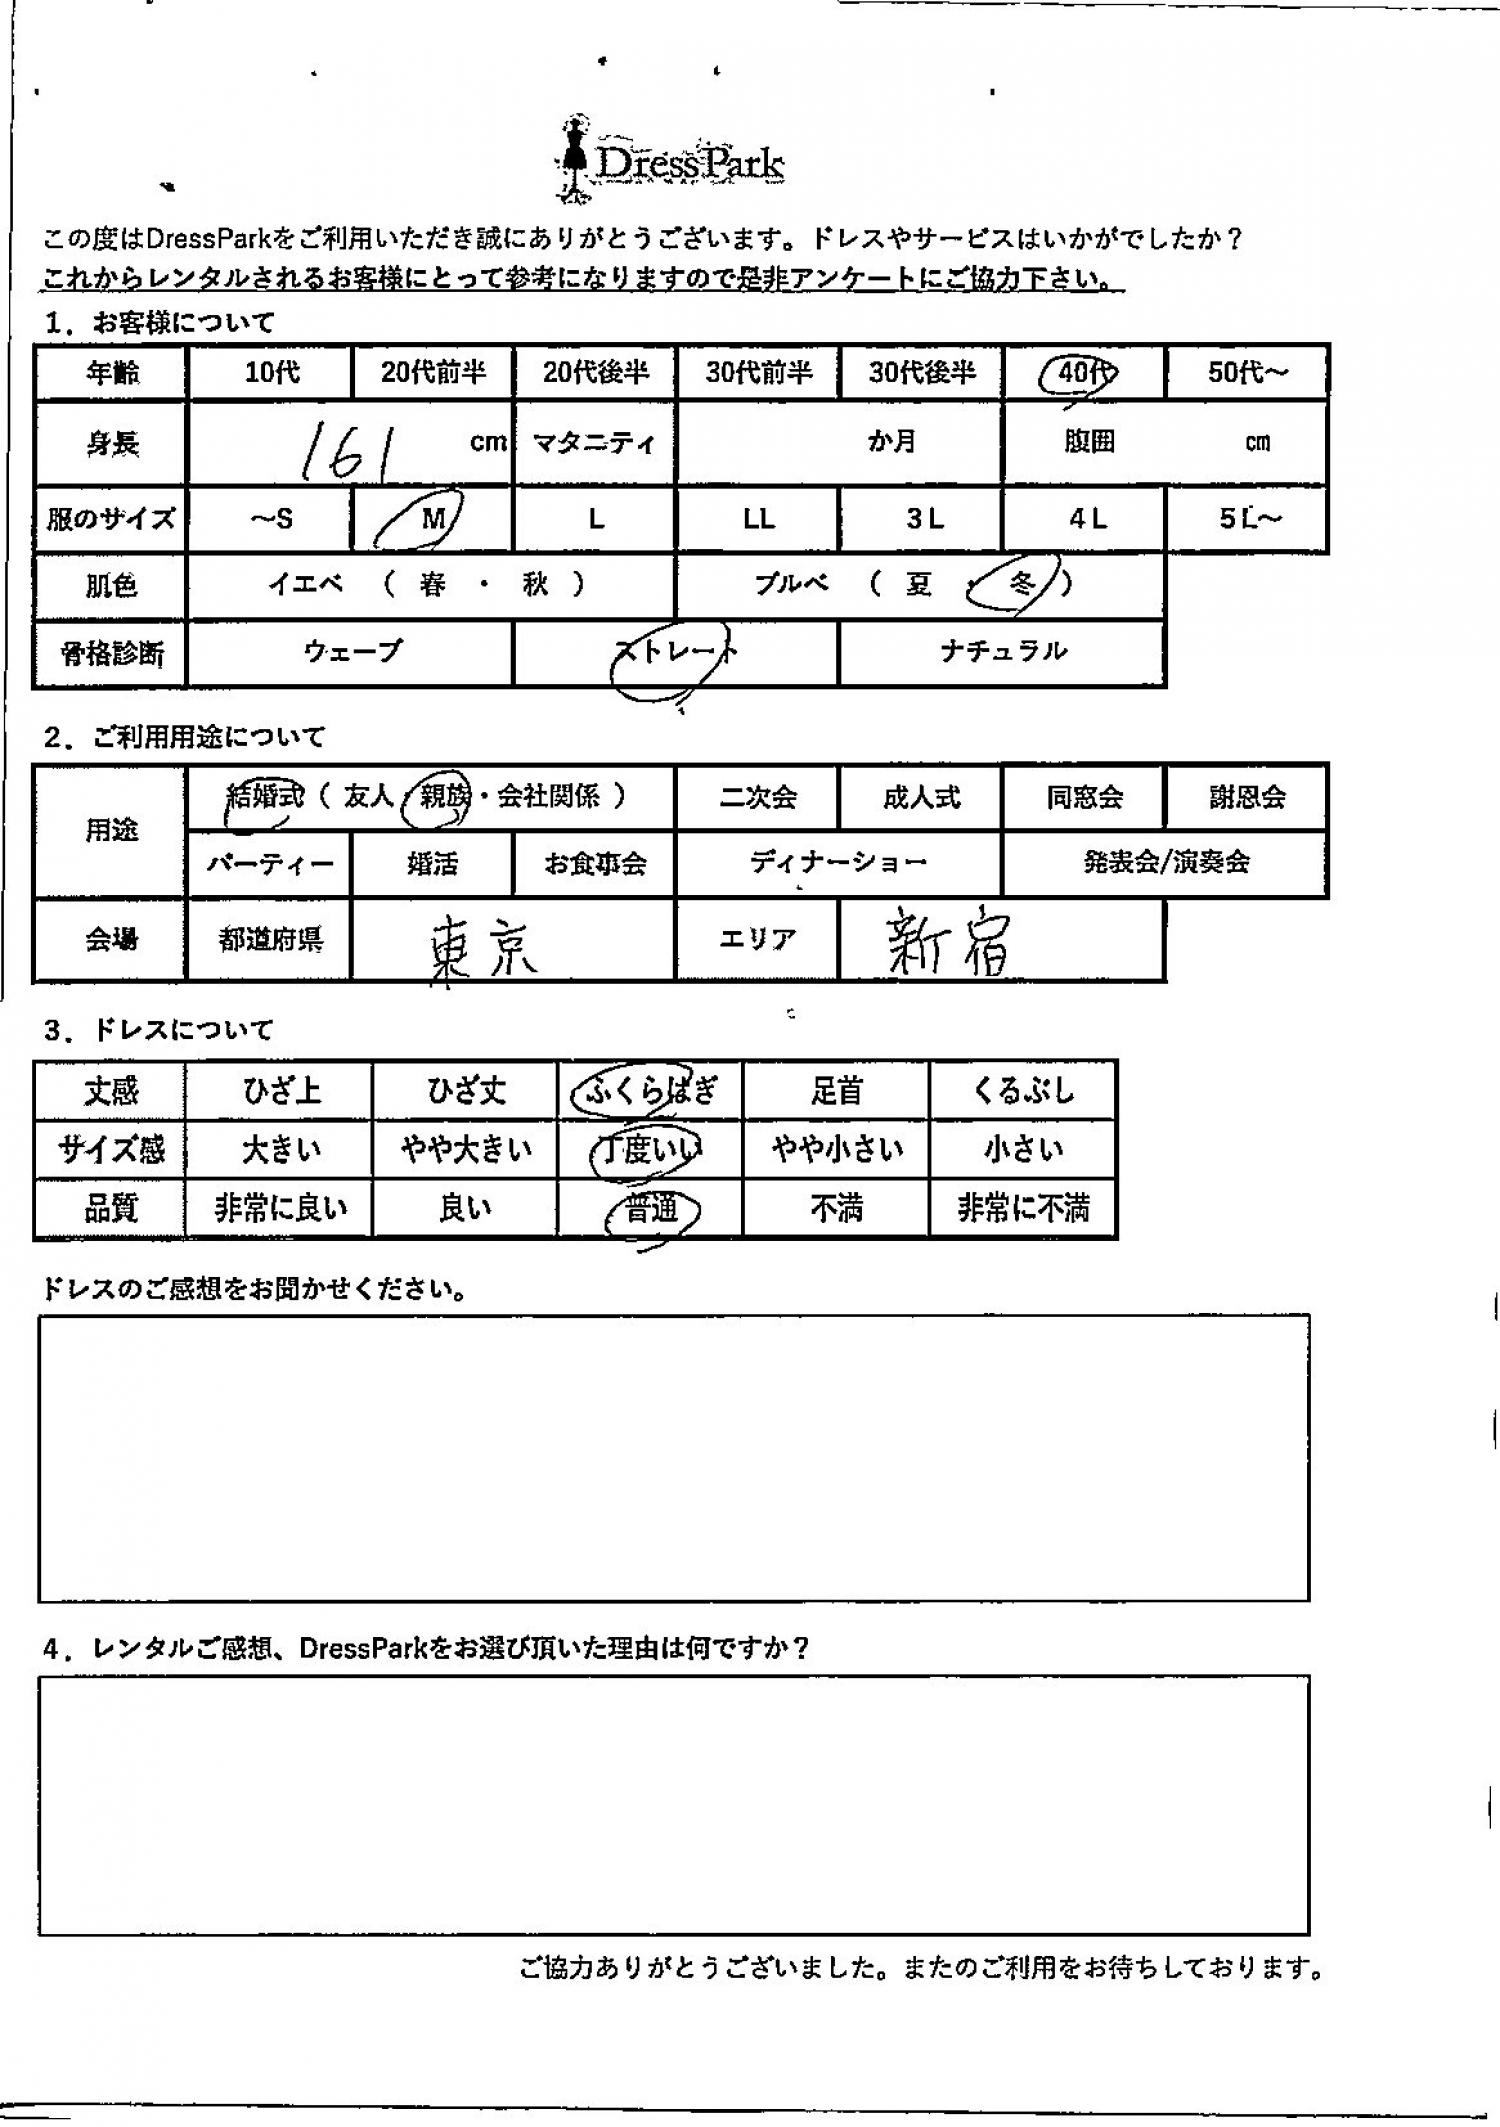 DressPark
この度はDressParkをご利用いただき誠にありがとうございます。ドレスやサービスはいかがでしたか？
これからレンタルされるお客様にとって参考になりますので是非アンケートにご協力下さい。
1．お客様について
年齢 10代 20代前半 20代後半 30代前半 30代後半 40代 50代～
身長 161 cm マタニティ か月 腹囲 cm
服のサイズ ～S M L LL 3L 4L 5L～
肌色 イエベ （ 春 ・ 秋 ） ブルベ （ 夏 ・ 冬 ）
骨格診断 ウェーブ ストレート ナチュラル
2．ご利用用途について
用途 結婚式（ 友人・親族・会社関係 ） 二次会 成人式 同窓会 謝恩会
パーティー 婚活 お食事会 ディナーショー 発表会/演奏会
会場 都道府県 東京 エリア 新宿
3．ドレスについて
丈感 ひざ上 ひざ丈 ふくらはぎ 足首 くるぶし
サイズ感 大きい やや大きい 丁度いい やや小さい 小さい
品質 非常に良い 良い 普通 不満 非常に不満
ドレスのご感想をお聞かせください。
4．レンタルご感想、DressParkをお選び頂いた理由は何ですか？
ご協力ありがとうございました。またのご利用をお待ちしております。